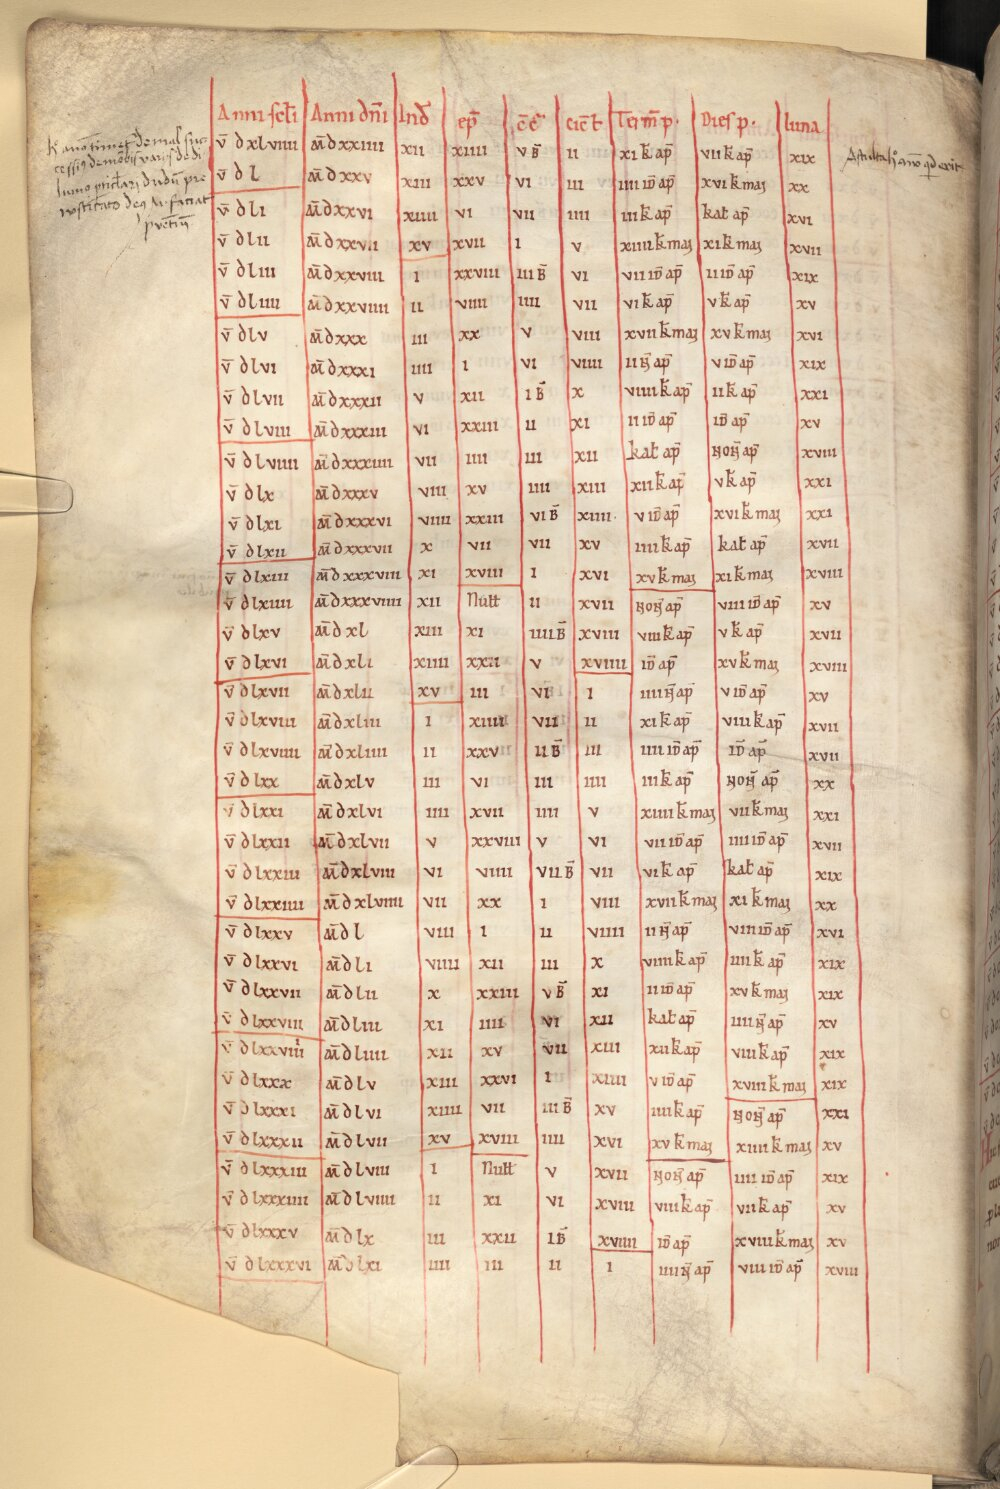 Anni sc̄li Anni dn̄i Ind̄ ep̄ c̄c̄ cicl̄ Term̄ p. Dies p. luna
v̄ dxlviiii m̄dxxiiii xii xiiii v b̄ ii xi k̄ ap̄ vii k̄ ap̄ xix
v̄ dl m̄dxxv xiii xxv vi iii iiii id̄ ap̄ xvi k̄ mai xx
v̄ dli m̄dxxvi xiiii vi vii iiii iii k̄ ap̄ kal̄ ap̄ xvi
v̄ dlii m̄dxxvii xv xvii i v xiiii k̄ mai xi k̄ mai xvii
v̄ dliii m̄dxxviii i xxviii iii b̄ vi vii id̄ ap̄ ii id̄ ap̄ xix
v̄ dliiii m̄dxxviiii ii viiii iiii vii vi k̄ ap̄ v k̄ ap̄ xv
v̄ dlv m̄dxxx iii xx v viii xvii k̄ mai xv k̄ mai xvi
v̄ dlvi m̄dxxxi iiii i vi viiii ii n̄ ap̄ v id̄ ap̄ xix
v̄ dlvii m̄dxxxii v xii i b̄ x viiii k̄ ap̄ ii k̄ ap̄ xxi
v̄ dlviii m̄dxxxiii vi xxiii ii xi ii id̄ ap̄ id̄ ap̄ xv
v̄ dlviiii m̄dxxxiiii vii iiii iii xii kal̄ ap̄ non̄ ap̄ xviii
v̄ dlx m̄dxxxv viii xv iiii xiii xii k̄ ap̄ v k̄ ap̄ xxi
v̄ dlxi m̄dxxxvi viiii xxiii vi b̄ xiiii v id̄ ap̄ xvi k̄ mai xxi
v̄ dlxii m̄dxxxvii x vii vii xv iiii k̄ ap̄ kal̄ ap̄ xvii
v̄ dlxiii m̄dxxxviii xi xviii i xvi xv k̄ mai xi k̄ mai xviii
v̄ dlxiiii m̄dxxxviiii xii Null̄ ii xvii non̄ ap̄ viii id̄ ap̄ xv
v̄ dlxv m̄dxl xiii xi iiii b̄ xviii viii k̄ ap̄ v k̄ ap̄ xvii
v̄ dlxvi m̄dxli xiiii xxii v xviiii id̄ ap̄ xv k̄ mai xviii
v̄ dlxvii m̄dxlii xv iii vi i iiii n̄ ap̄ v id̄ ap̄ xv
v̄ dlxviii m̄dxliii i xiiii vii ii xi k̄ ap̄ viii k̄ ap̄ xvii
v̄ dlxviiii m̄dxliiii ii xxv ii b̄ iii iiii id̄ ap̄ id̄ ap̄ xvii
v̄ dlxx m̄dxlv iii vi iii iiii iii k̄ ap̄ non̄ ap̄ xx
v̄ dlxxi m̄dxlvi iiii xvii iiii v xiiii k̄ mai vii k̄ mai xxi
v̄ dlxxii m̄dxlvii v xxviii v vi vii id̄ ap̄ iiii id̄ ap̄ xvii
v̄ dlxxiii m̄dxlviii vi viiii vii b̄ vii vi k̄ ap̄ kal̄ ap̄ xix
v̄ dlxxiiii m̄dxlviiii vii xx i viii xvii k̄ mai xi k̄ mai xx
v̄ dlxxv m̄dl viii i ii viiii ii n̄ ap̄ viii id̄ ap̄ xvi
v̄ dlxxvi m̄dli viiii xii iii x viiii k̄ ap̄ iiii k̄ ap̄ xix
v̄ dlxxvii m̄dlii x xxiii v b̄ xi ii id̄ ap̄ xv k̄ mai xix
v̄ dlxxviii m̄dliii xi iiii vi xii kal̄ ap̄ iiii n̄ ap̄ xv
v̄ dlxxviiii m̄dliiii xii xv vii xiii xii k̄ ap̄ viii k̄ ap̄ xix
v̄ dlxxx m̄dlv xiii xxvi i xiiii v id̄ ap̄ xviii k̄ mai xix
v̄ dlxxxi m̄dlvi xiiii vii iii b̄ xv iiii k̄ ap̄ non̄ ap̄ xxi
v̄ dlxxxii m̄dlvii xv xviii iiii xvi xv k̄ mai xiiii k̄ mai xv
v̄ dlxxxiii m̄dlviii i Null̄ v xvii non̄ ap̄ iiii id̄ ap̄ xix
v̄ dlxxxiiii m̄dlviiii ii xi vi xviii viii k̄ ap̄ vii k̄ ap̄ xv
v̄ dlxxxv m̄dlx iii xxii i b̄ xviiii id̄ ap̄ xviii k̄ mai xv
v̄ dlxxxvi m̄dlxi iiii iii ii i iiii n̄ ap̄ viii id̄ ap̄ xviii